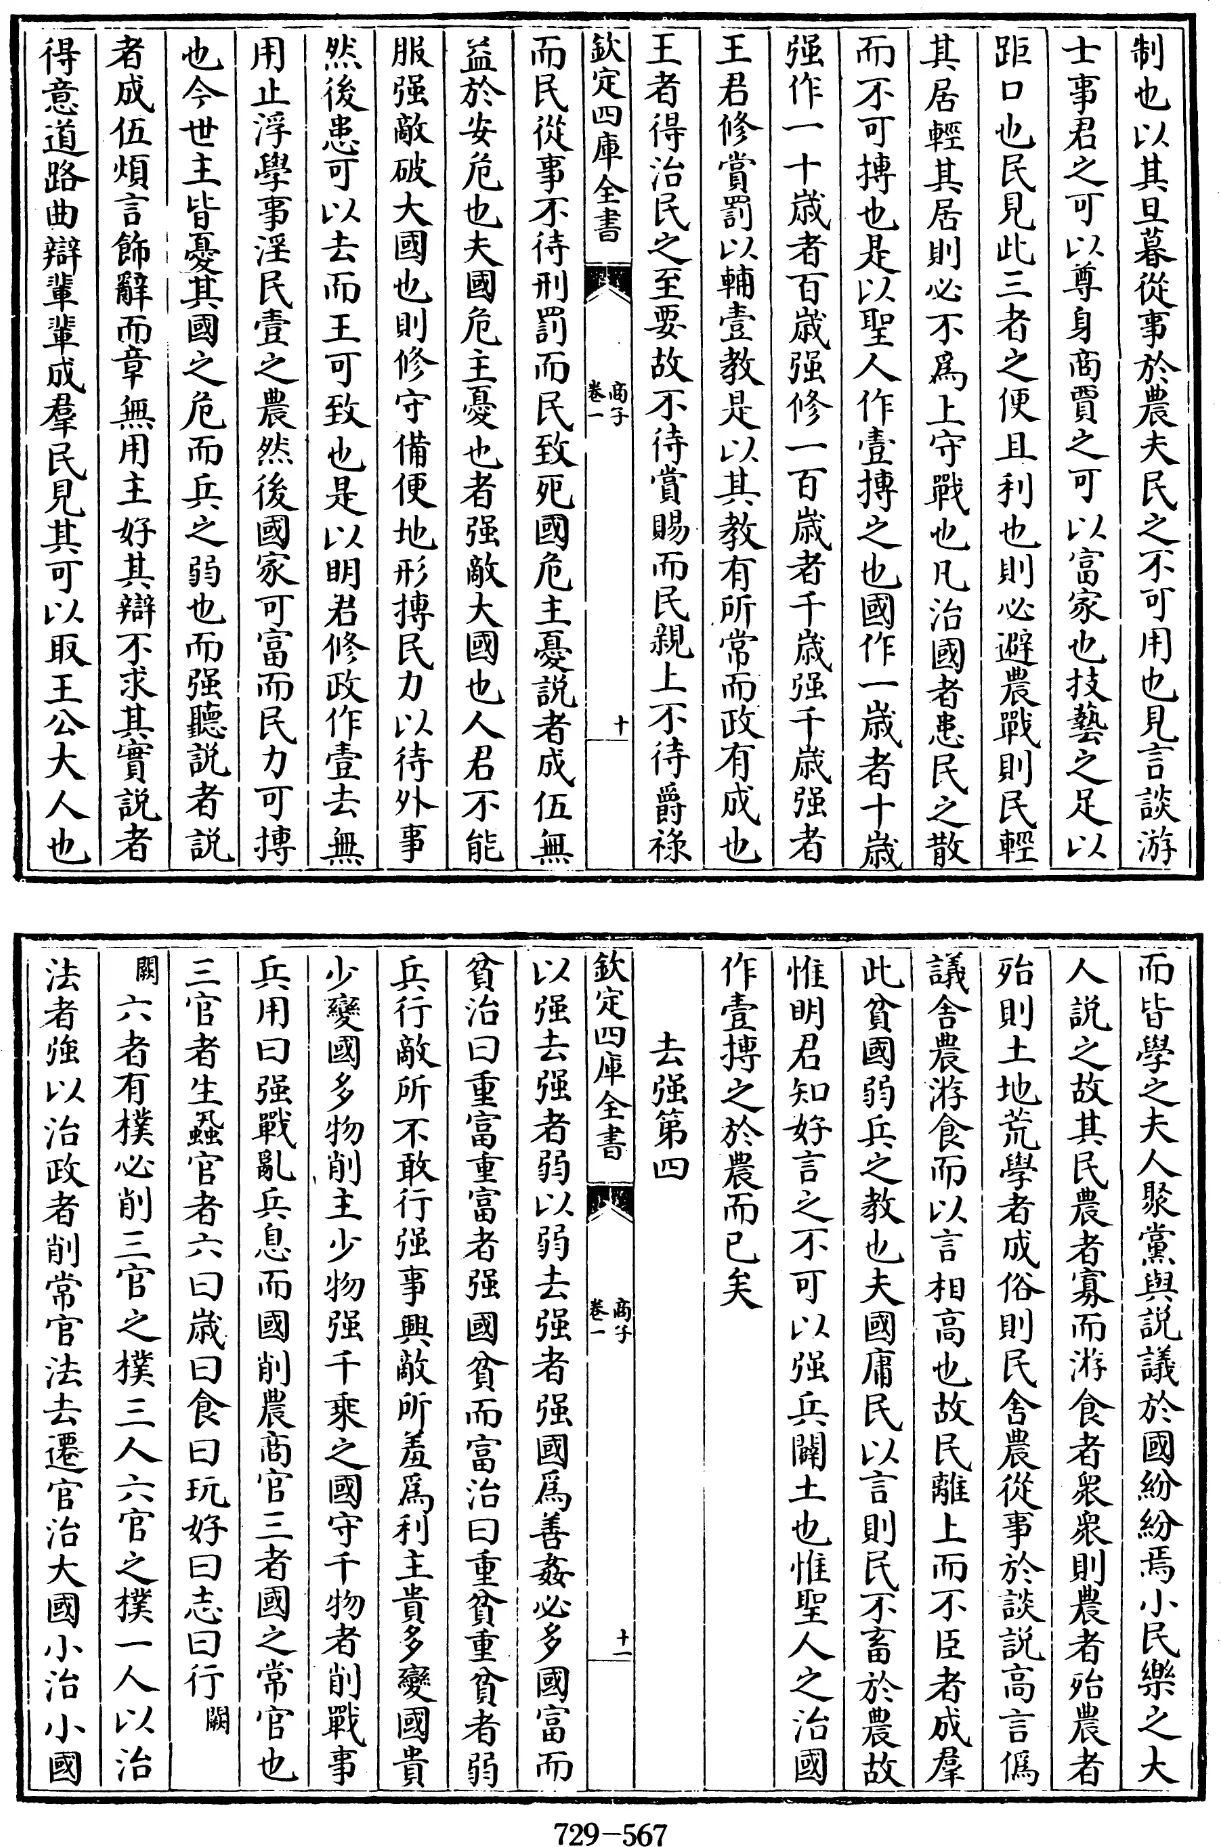 制也以其旦暮從事於農夫民之不可用也見言談游
士事君之可以尊身商賈之可以富家也技藝之足以
距口也民見此三者之便且利也則必避農戰則民輕
其居輕其居則必不爲上守戰也凡治國者患民之散
而不可摶也是以聖人作壹摶之也國作一歳者十歳
强作一十歳者百歳强修一百歳者千歳强千歳强者
王君修賞罰以輔壹教是以其教有所常而政有成也
王者得治民之至要故不待賞賜而民親上不待爵祿
欽定四庫全書
商子
卷一
十
而民從事不待刑罰而民致死國危主憂説者成伍無
益於安危也夫國危主憂也者强敵大國也人君不能
服强敵破大國也則修守備便地形摶民力以待外事
然後患可以去而王可致也是以明君修政作壹去無
用止浮學事淫民壹之農然後國家可富而民力可摶
也今世主皆憂其國之危而兵之弱也而强聽説者説
者成伍煩言飾辭而章無用主好其辯不求其實説者
得意道路曲辯輩輩成羣民見其可以取王公大人也
而皆學之夫人聚黨與説議於國紛紛焉小民樂之大
人説之故其民農者寡而游食者衆衆則農者殆農者
殆則土地荒學者成俗則民舍農從事於談説高言僞
議舍農游食而以言相高也故民離上而不臣者成羣
此貧國弱兵之教也夫國庸民以言則民不畜於農故
惟明君知好言之不可以强兵闢土也惟聖人之治國
作壹摶之於農而已矣
去强第四
欽定四庫全書
商子
卷一
十一
以强去强者弱以弱去强者强國爲善姦必多國富而
貧治曰重富重富者强國貧而富治曰重貧重貧者弱
兵行敵所不敢行强事興敵所羞爲利主貴多變國貴
少變國多物削主少物强千乘之國守千物者削戰事
兵用曰强戰亂兵息而國削農商官三者國之常官也
三官者生蝨官者六曰歳曰食曰玩好曰志曰行闕
闕六者有樸必削三官之樸三人六官之樸一人以治
法者強以治政者削常官法去遷官治大國小治小國
729-567